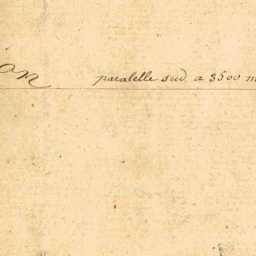 on paralelle sud a 3500 m